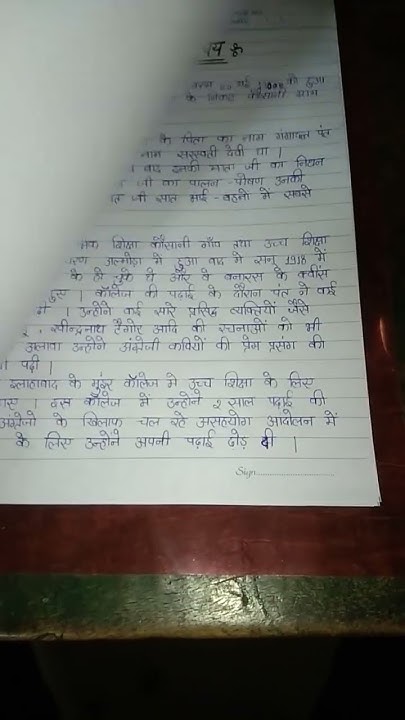 यः
जन्म 20 मई 1900 को हुआ
के निकट कौसानी ग्राम
के पिता का नाम गंगादत्त पंत
नाम सरस्वती देवी था |
बाद इनकी माता जी का निधन
जी का पालन - पोषण उनकी
जी सात भाई - बहनों में सबसे
शिक्षा कौसानी गाँव तथा उच्च शिक्षा
अल्मोड़ा में हुआ बाद में सन् 1918 में
के हो चुके थे और वे बनारस के क्वींस
हुए | कॉलेज की पढ़ाई के दौरान पंत ने कई
| उन्होंने कई सारे प्रसिद्ध व्यक्तियों जैसे
रवीन्द्रनाथ टैगोर आदि की रचनाओं को भी
अलावा उन्होंने अंग्रेजी कवियों की प्रेम प्रसंग की
पढ़ी |
इलाहाबाद के मुइर कॉलेज मे उच्च शिक्षा के लिए
| इस कॉलेज में उन्होंने 2 साल पढ़ाई की
अंग्रेजो के खिलाफ चल रहे असहयोग आंदोलन में
के लिए उन्होंने अपनी पढ़ाई छोड़ दी |
Sign